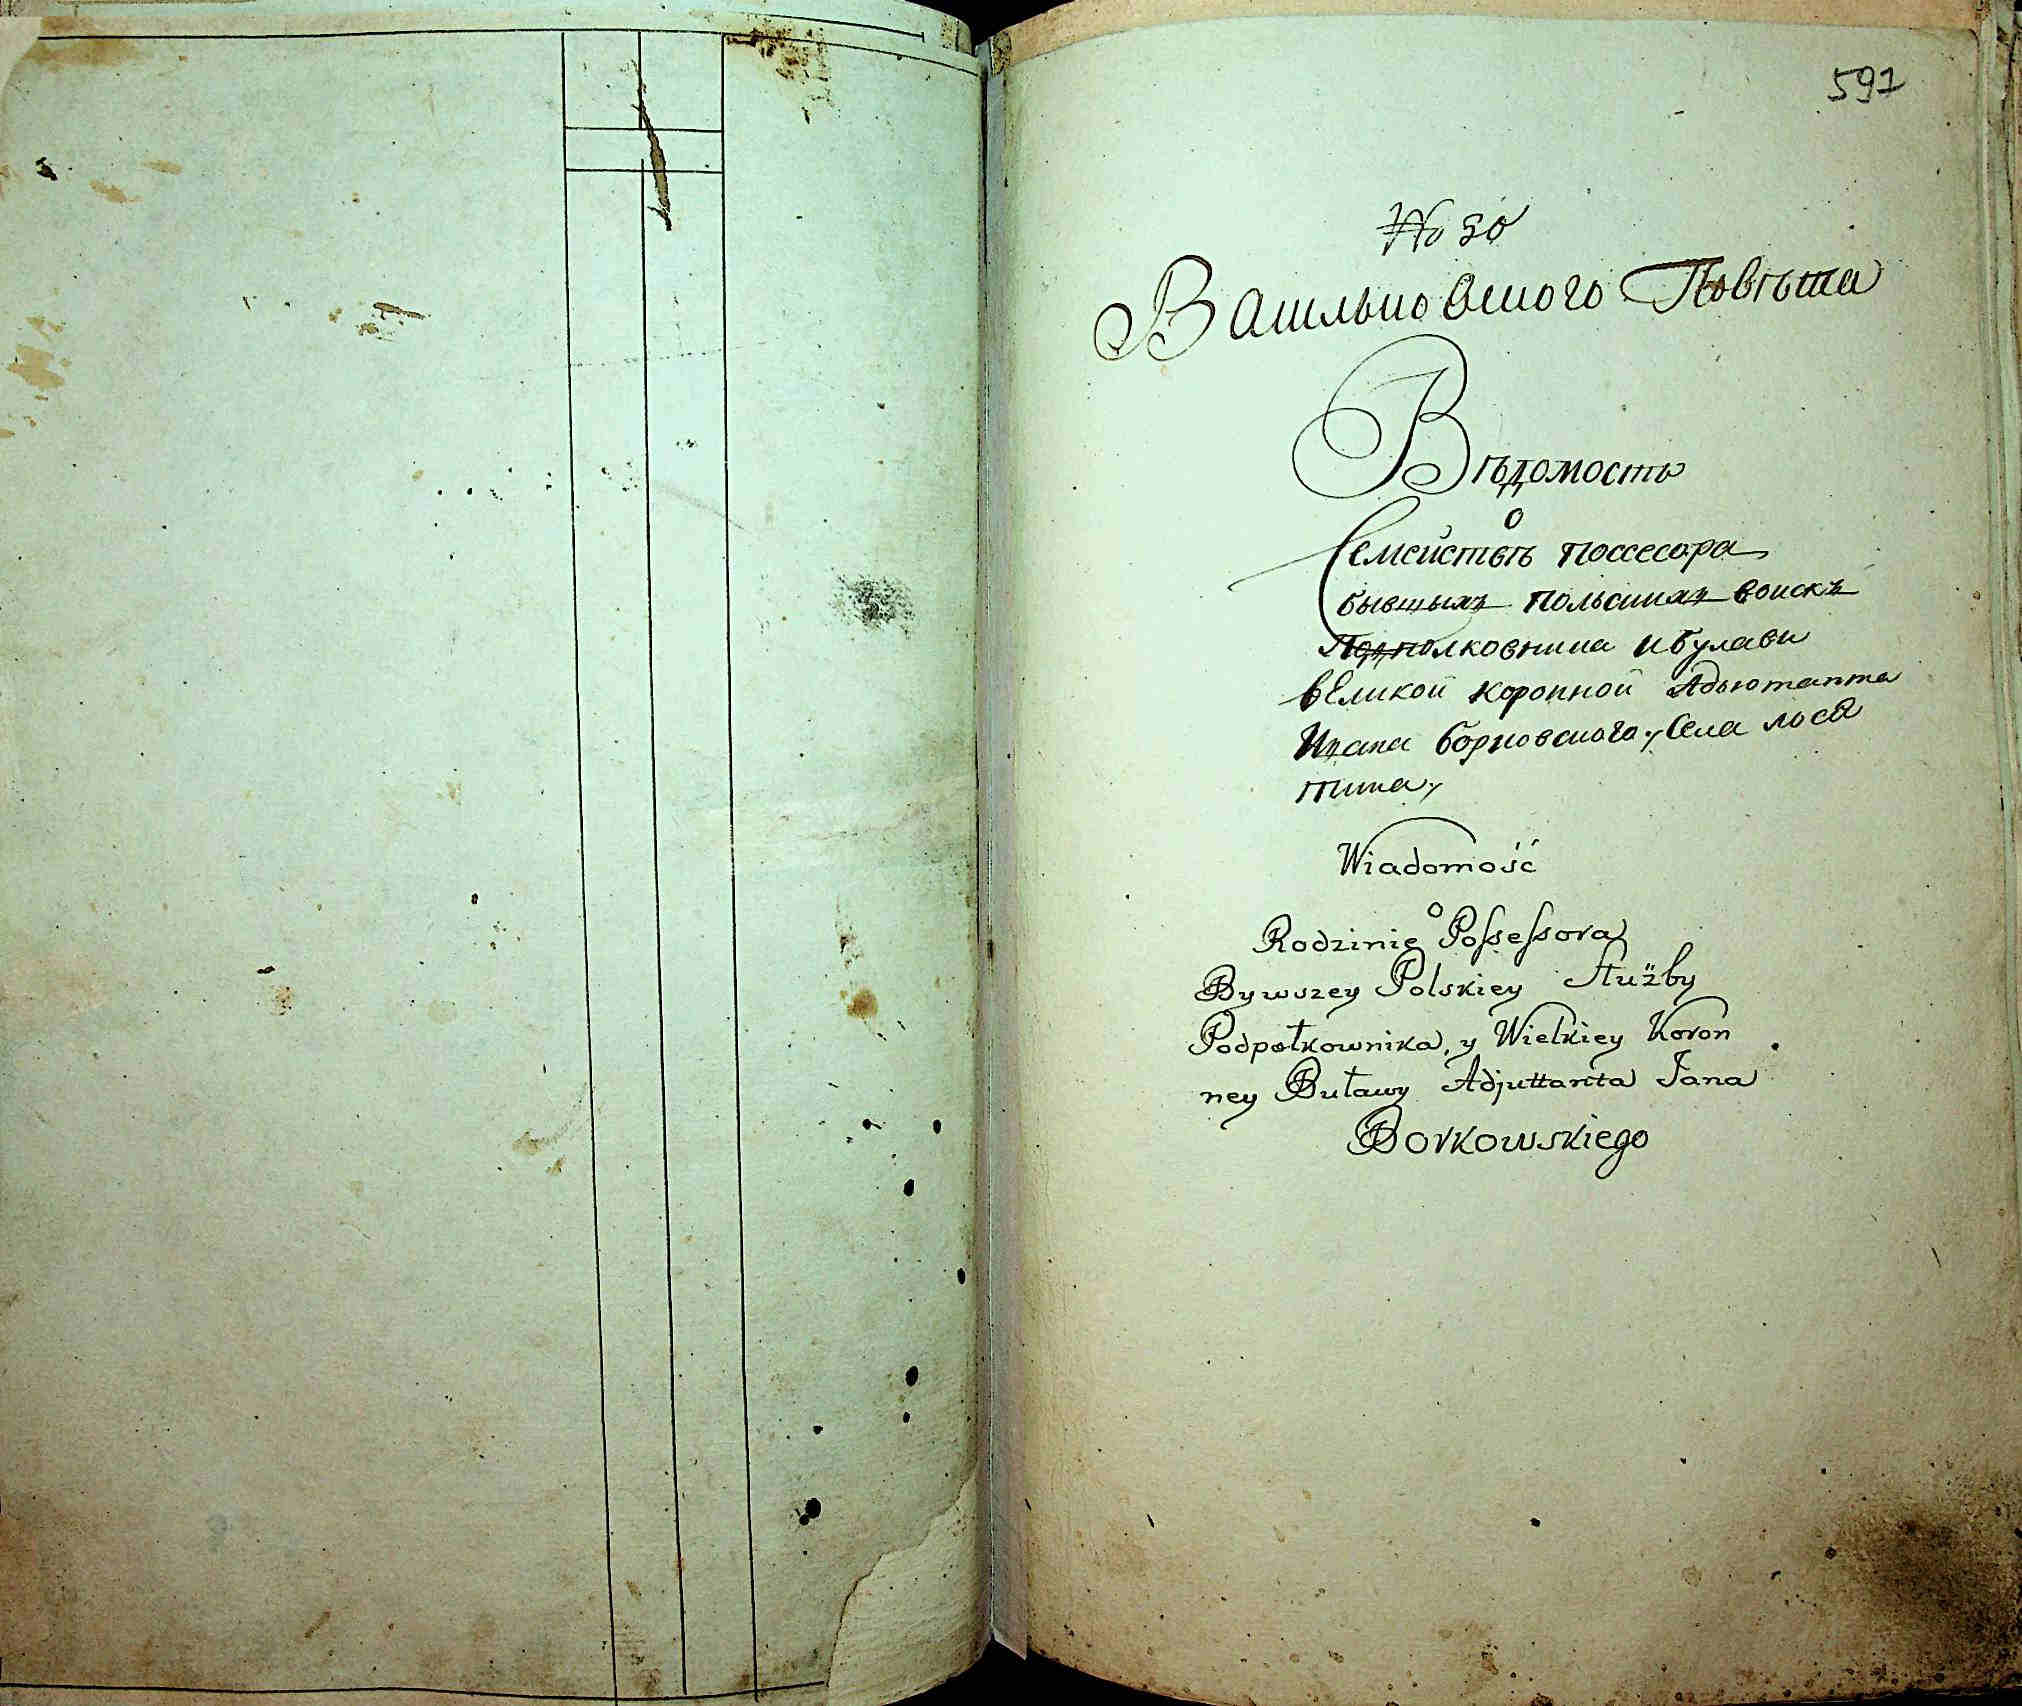 591
No 30
Васильковского Повѣта
Вѣдомость
о
Семействѣ поссесора
бывшыхъ польскихъ воискъ
Подполковника и булави
великой коронной Адьютанта
Ивана борковского, Села лося
тина,
Wiadomość
o
Rodzinie Possessora
Bywszey Polskiey Służby
Podpołkownika, y Wielkiey Koron
ney Buławy Adjuttanta Jana
Borkowskiego